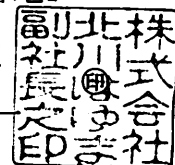 株式会社
北川はゆま
副社長之印